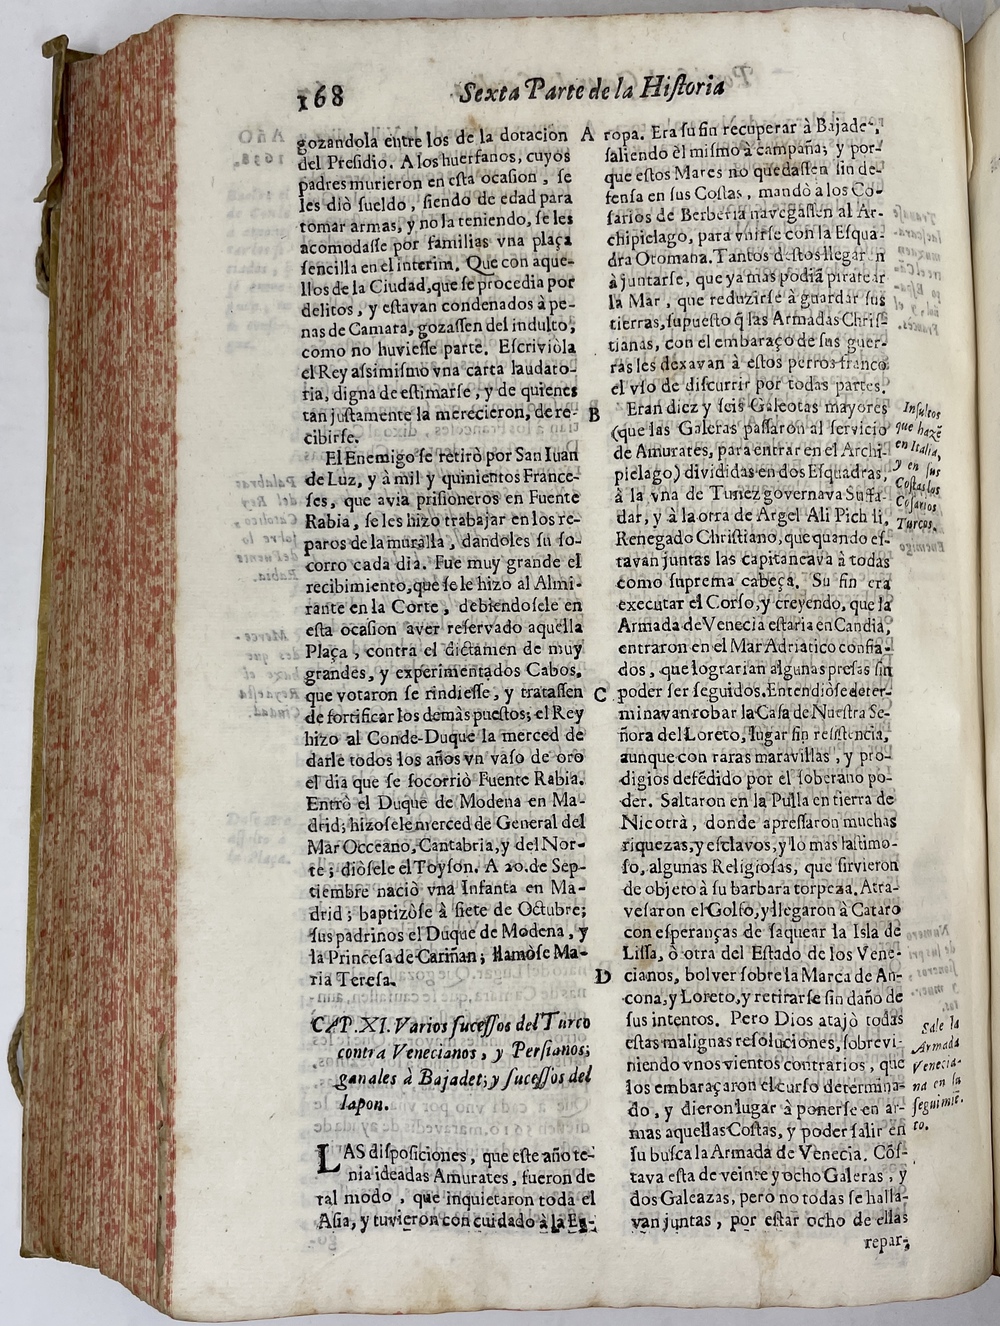 168
Sexta Parte de la Hiſtoria
gozandola entre los de la dotacion
del Preſidio. A los huerfanos, cuyos
padres murieron en eſta ocaſion, ſe
les diò ſueldo, ſiendo de edad para
tomar armas, y no la teniendo, ſe les
acomodaſſe por familias vna plaça
ſencilla en el interim. Que con aque-
llos de la Ciudad, que ſe procedia por
delitos, y eſtavan condenados à pe-
nas de Camara, gozaſſen del indulto,
como no huvieſſe parte. Eſcriviòla
el Rey aſsimiſmo vna carta laudato-
ria, digna de eſtimarſe, y de quienes
tan juſtamente la merecieron, de re-
cibirſe.
El Enemigo ſe retirò por San Iuan
de Luz, y à mil y quinientos France-
ſes, que avia priſioneros en Fuente
Rabia, ſe les hizo trabajar en los re-
paros de la muralla, dandoles ſu ſo-
corro cada dia. Fue muy grande el
recibimiento, que ſe le hizo al Almi-
rante en la Corte, debiendoſele en
eſta ocaſion aver reſervado aquella
Plaça, contra el dictamen de muy
grandes, y experimentados Cabos,
que votaron ſe rindieſſe, y trataſſen
de fortificar los demàs pueſtos; el Rey
hizo al Conde-Duque la merced de
darle todos los años vn vaſo de oro
el dia que ſe ſocorriò Fuente Rabia.
Entrò el Duque de Modena en Ma-
drid; hizoſele merced de General del
Mar Occeano, Cantabria, y del Nor-
te; diòſele el Toyſon. A 20. de Sep-
tiembre naciò vna Infanta en Ma-
drid; baptizòſe à ſiete de Octubre;
ſus padrinos el Duque de Modena, y
la Princeſa de Cariñan; llamòſe Ma-
ria Tereſa.
CAP. XI. Varios ſuceſſos del Turco
contra Venecianos, y Perſianos;
ganales à Bajadet; y ſuceſſos del
Iapon.
LAS diſpoſiciones, que eſte año te-
nia ideadas Amurates, fueron de
tal modo, que inquietaron toda el
Aſia, y tuvieron con cuidado à la Eu-
A
B
C
D
ropa. Era ſu fin recuperar à Bajadet,
ſaliendo èl miſmo à campaña; y por-
que eſtos Mares no quedaſſen ſin de-
fenſa en ſus Coſtas, mandò à los Co-
ſarios de Berberia navegaſſen al Ar-
chipielago, para vnirſe con la Eſqua-
dra Otomana. Tantos deſtos llegaron
à juntarſe, que ya mas podiã piratear
la Mar, que reduzirſe à guardar ſus
tierras, ſupueſto q̃ las Armadas Chriſ-
tianas, con el embaraço de ſus guer-
ras les dexavan à eſtos perros franco
el vſo de diſcurrir por todas partes.
Eran diez y ſeis Galeotas mayores
(que las Galeras paſſaron al ſervicio
de Amurates, para entrar en el Archi-
pielago) divididas en dos Eſquadras,
à la vna de Tunez governava Suffa-
dar, y à la otra de Argel Ali Pichili,
Renegado Chriſtiano, que quando eſ-
tavan juntas las capitaneava à todas
como ſuprema cabeça. Su fin era
executar el Corſo, y creyendo, que la
Armada de Venecia eſtaria en Candia,
entraron en el Mar Adriatico confia-
dos, que lograrian algunas preſas ſin
poder ſer ſeguidos. Entendiòſe deter-
minavan robar la Caſa de Nueſtra Se-
ñora del Loreto, lugar ſin reſiſtencia,
aunque con raras maravillas, y pro-
digios defẽdido por el ſoberano po-
der. Saltaron en la Pulla en tierra de
Nicotrà, donde apreſſaron muchas
riquezas, y eſclavos, y lo mas laſtimo-
ſo, algunas Religioſas, que ſirvieron
de objeto à ſu barbara torpeza. Atra-
veſaron el Golfo, y llegaron à Cataro
con eſperanças de ſaquear la Isla de
Liſſa, ò otra del Eſtado de los Vene-
cianos, bolver ſobre la Marca de An-
cona, y Loreto, y retirarſe ſin daño de
ſus intentos. Pero Dios atajò todas
eſtas malignas reſoluciones, ſobrevi-
niendo vnos vientos contrarios, que
los embaraçaron el curſo determina-
do, y dieron lugar à ponerſe en ar-
mas aquellas Coſtas, y poder ſalir en
ſu buſca la Armada de Venecia. Cõſ-
tava eſta de veinte y ocho Galeras, y
dos Galeazas, pero no todas ſe halla-
van juntas, por eſtar ocho de ellas
repar-
Inſultos
que hazẽ
en Italia,
y en ſus
Coſtas los
Coſarios
Turcos.
Sale la
Armada
Venecia-
na en ſu
ſeguimiẽ-
to.